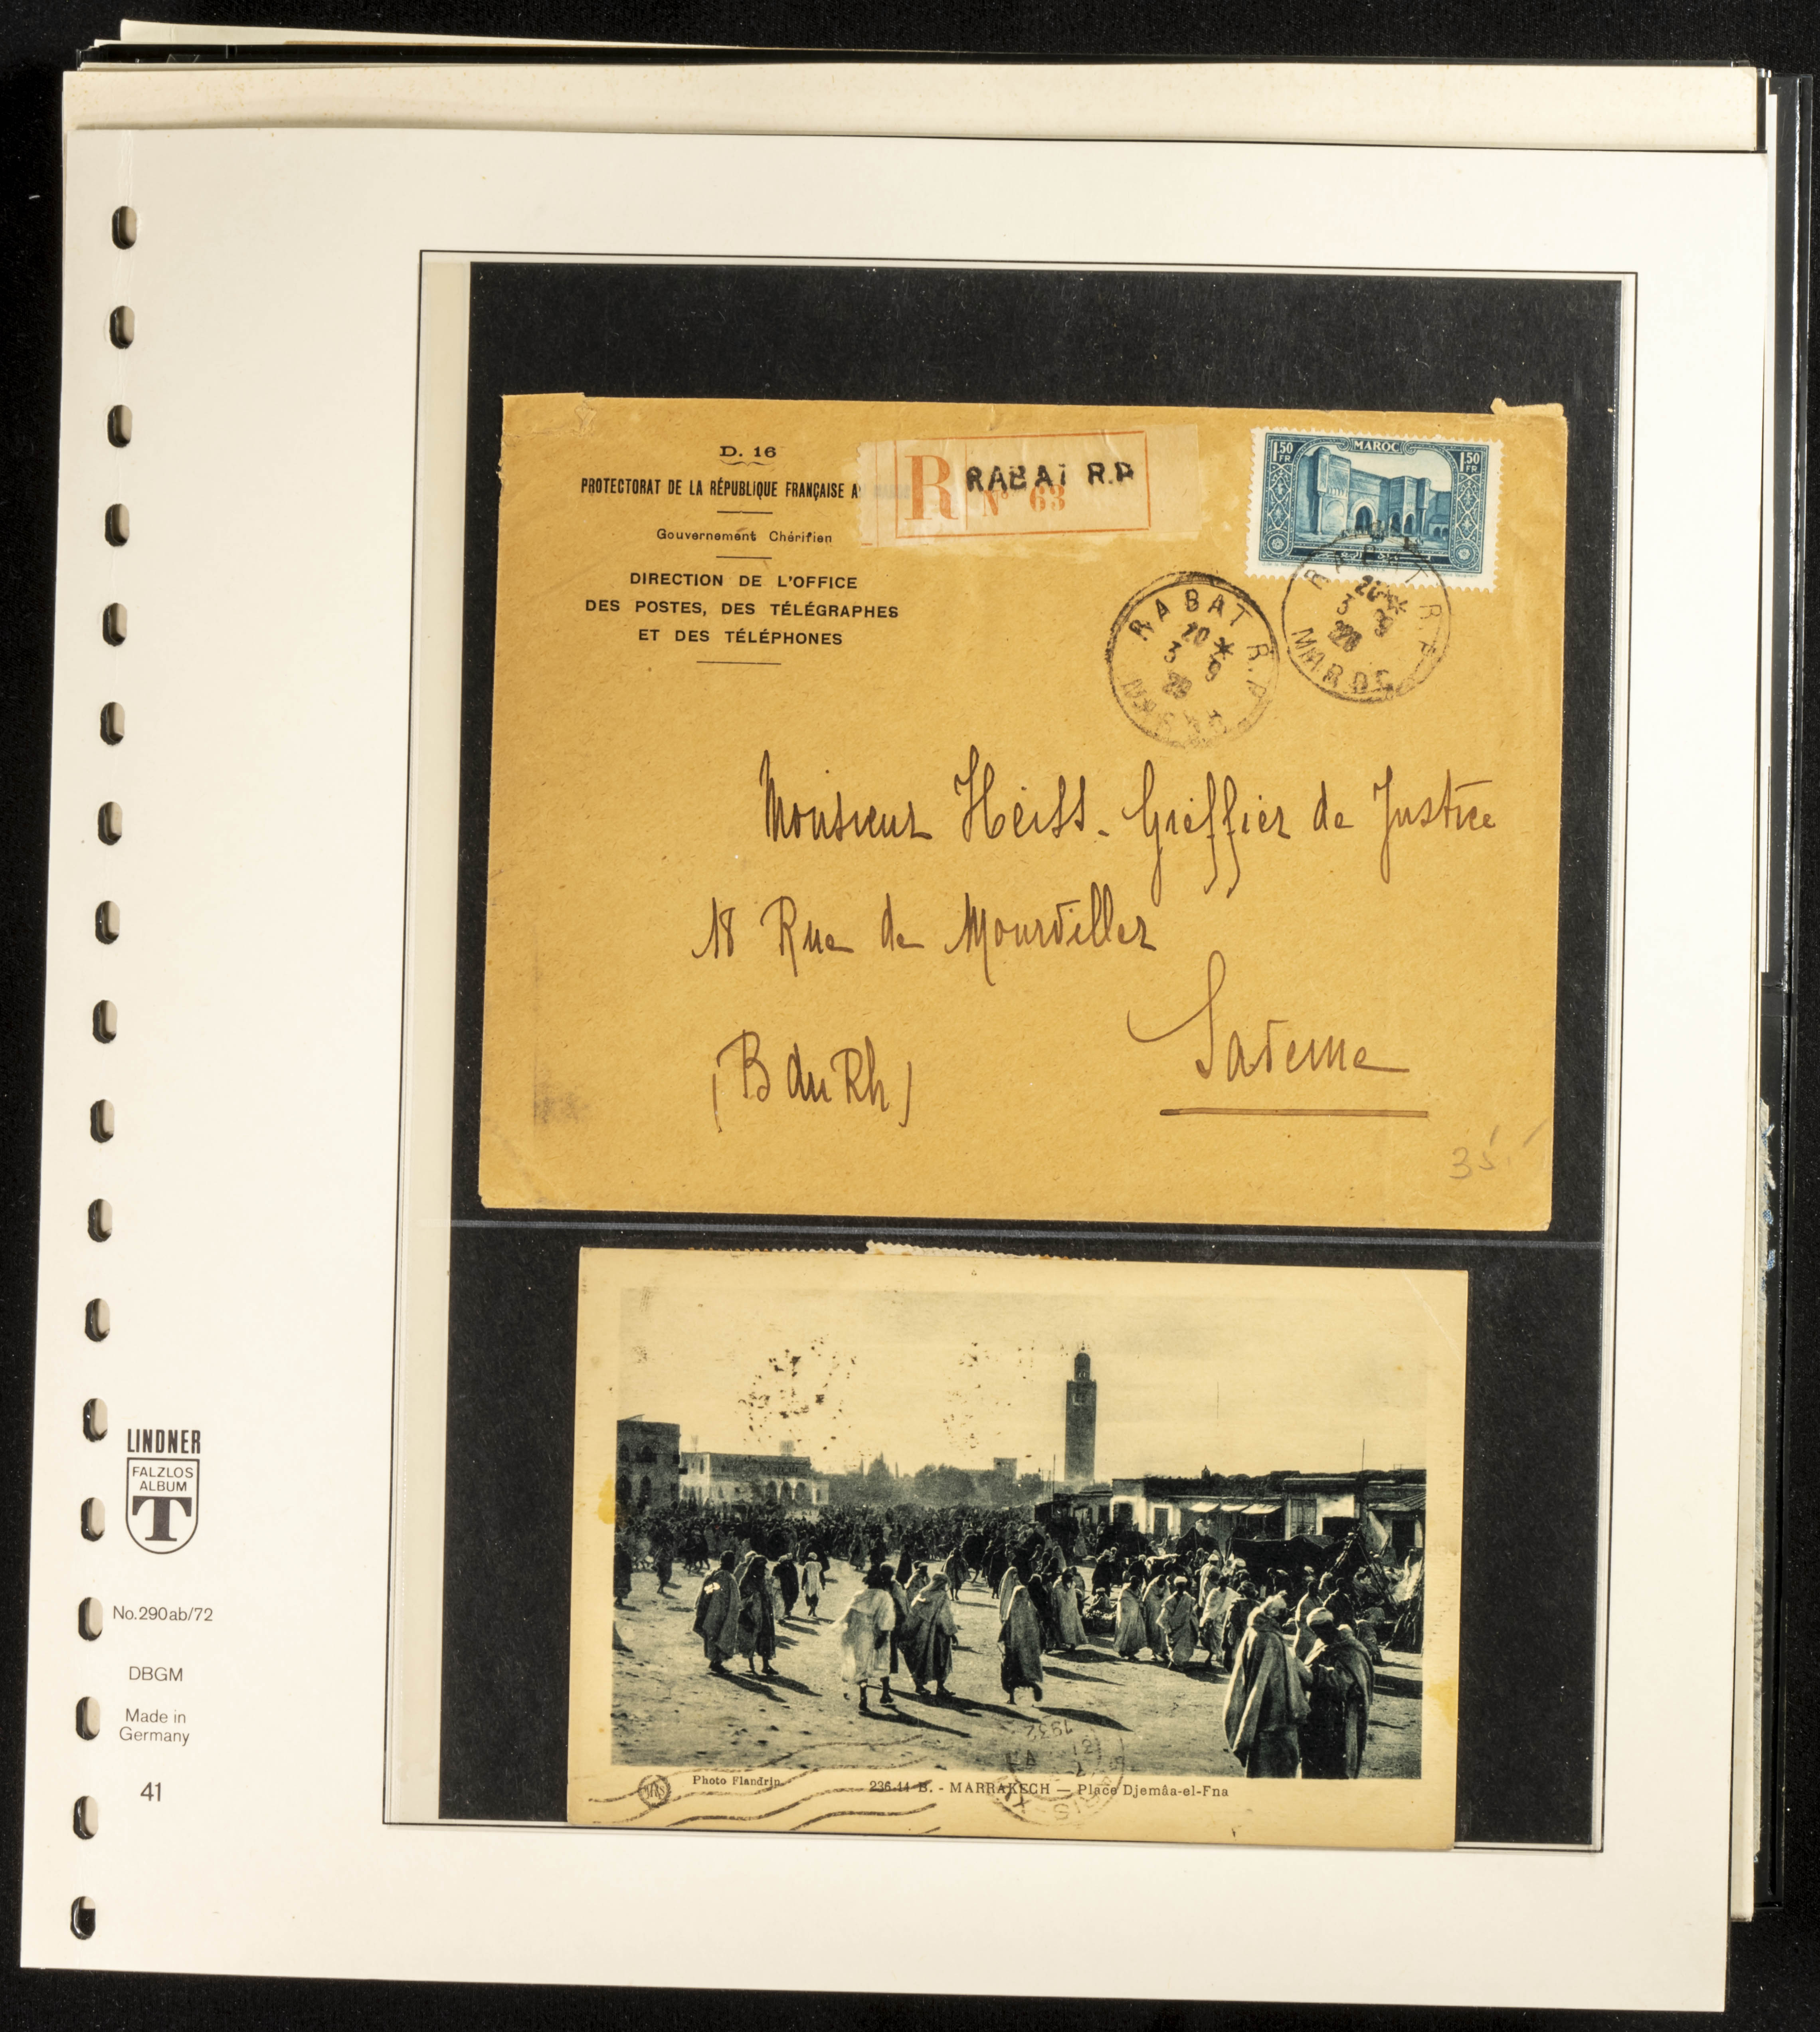 D. 16
PROTECTORAT DE LA RÉPUBLIQUE FRANÇAISE A
Gouvernement Chérifien
DIRECTION DE L'OFFICE
DES POSTES, DES TÉLÉGRAPHES
ET DES TÉLÉPHONES
R RABAT R.P
N° 63
1,50 FR MAROC 1,50 FR
RABAT R.P
20 *
3 9
MAROC
RABAT R.P
20 *
3 9
28
MAROC
Monsieur Heiss. Greffier de Justice
18 Rue de
(B du Rh)
35
1932
Photo Flandrin
236-14 B. - MARRAKECH — Place Djemâa-el-Fna
LINDNER
FALZLOS
ALBUM
T
No.290ab/72
DBGM
Made in
Germany
41